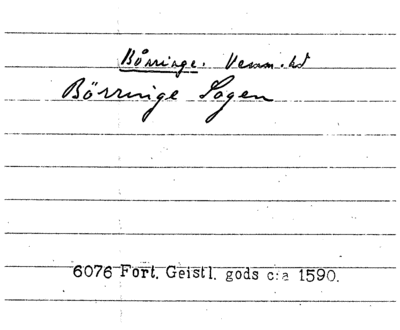 Börringe. Vemm. hd
Börringe Sogen
6076 Fort. Geistl. gods c:a 1590.